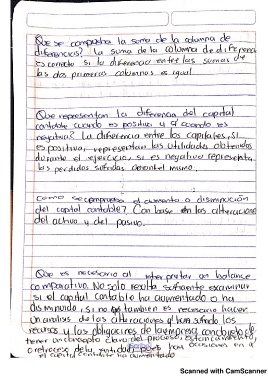 Que se comprueba la suma de la columna de
diferencias? La suma de la columna de diferencia
es correcta si la diferencia entre las sumas de
las dos primeras columnas es igual
Que representan la diferencia del capital
contable cuando es positiva y si cuando es
negativa? La diferencia entre los capitales, si
es positiva, representan las utilidades obtenidas
durante el ejercicio, si es negativa representa
las perdidas sufridas durante el mismo.
como se comprueba el aumento o disminución
del capital contable? Con base en las alteraciones
del activo y del pasivo.
Que es necesario al interpretar un balance
comparativo. No solo resulta suficiente examinar
si el capital contable ha aumentado o ha
disminuido, si no también es necesario hacer
un analisis de las alteraciones q' han sufrido los
recursos y las obligaciones de la empresa, conducta de
tener un concepto claro del proceso, estancamiento,
o retroceso de la entidad, para decisiones en
el capital contable ha aumentado
Scanned with CamScanner